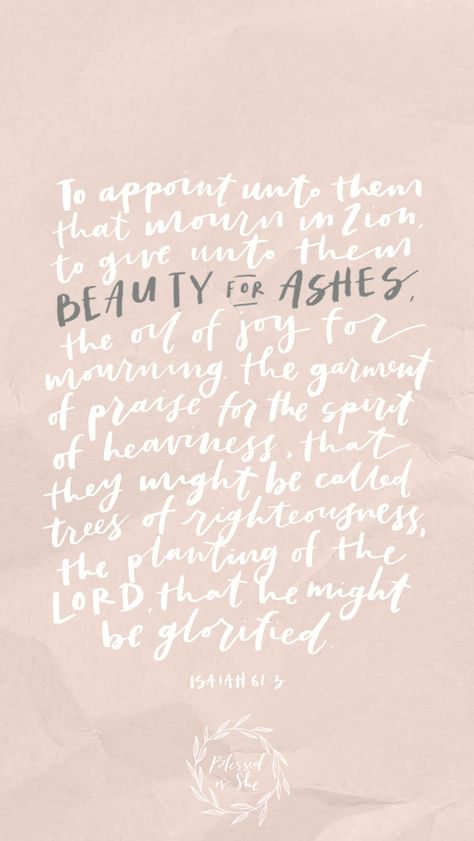 To appoint unto them
that mourn in Zion,
to give unto them
BEAUTY FOR ASHES,
the oil of joy for
mourning, the garment
of praise for the spirit
of heaviness, that
they might be called
trees of righteousness,
the planting of the
LORD, that he might
be glorified.
ISAIAH 61:3
Blessed
is She